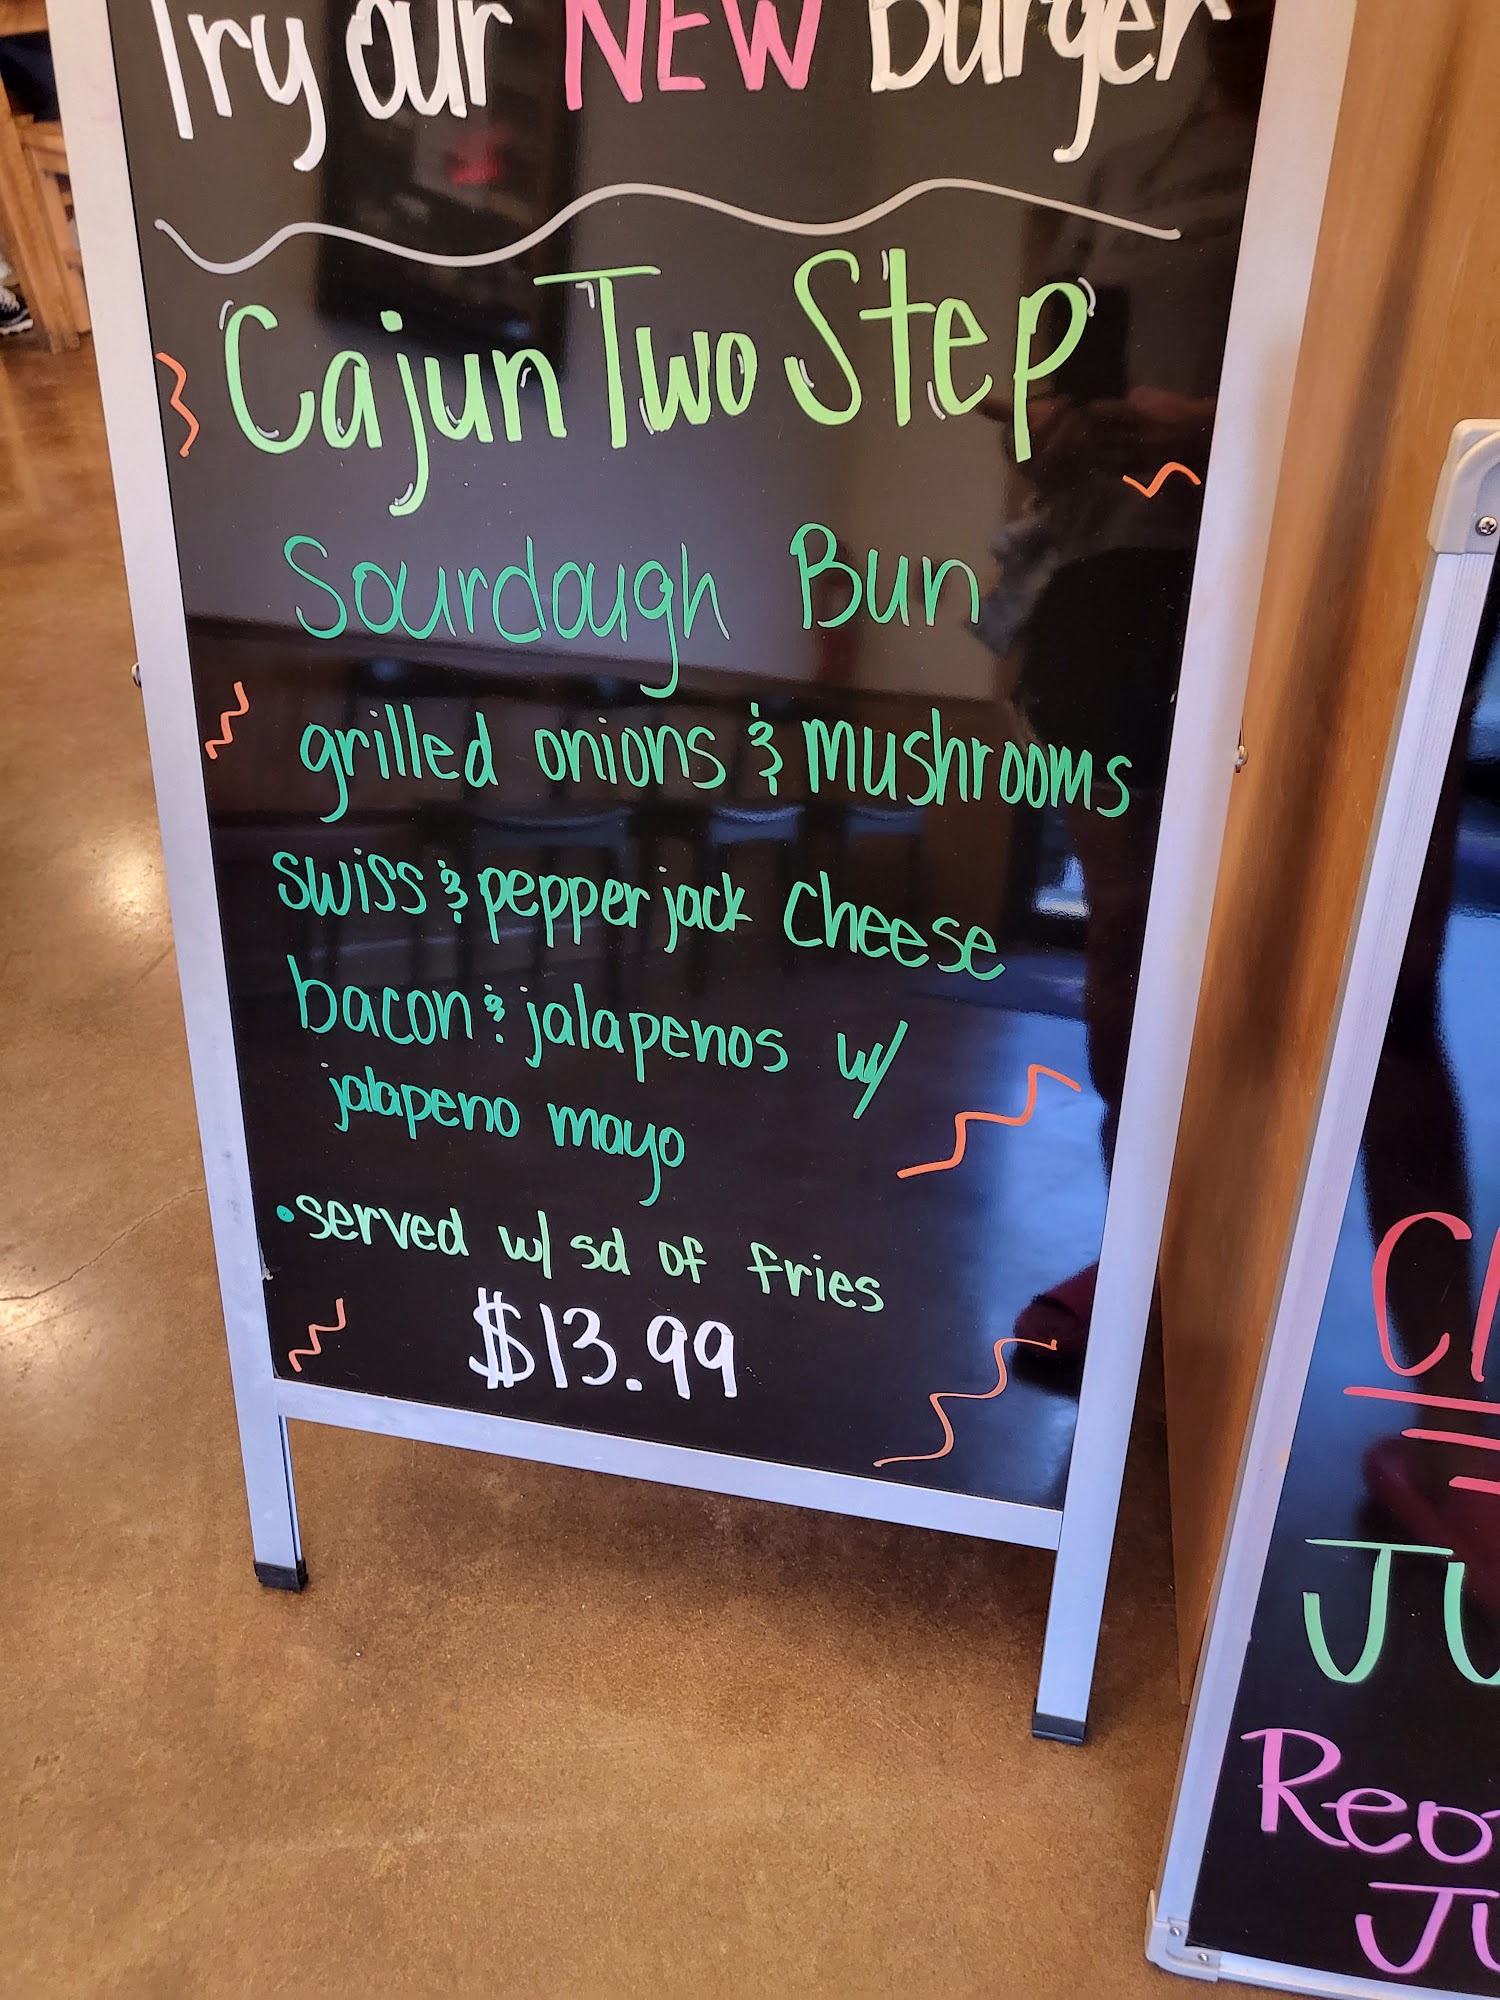 Try our NEW Burger
Cajun Two Step
Sourdough Bun
grilled onions & mushrooms
swiss & pepper jack cheese
bacon & jalapenos w/
jalapeno mayo
• served w/ sd of fries
$13.99